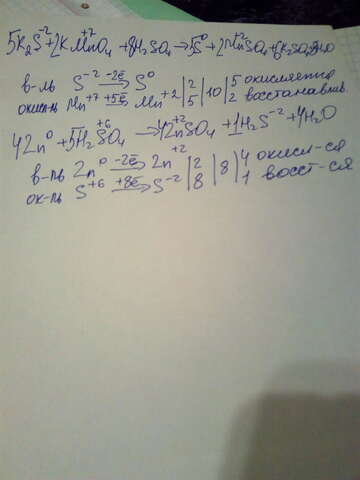 5K₂S⁻² + 2KMn⁺⁷O₄ + 8H₂SO₄ → 5S⁰ + 2Mn⁺²SO₄ + 6K₂SO₄ + 8H₂O
в-ль S⁻² –2e̅→ S⁰ | 2 | 10 | 5 окисляется
окисл-ль Mn⁺⁷ +5e̅→ Mn⁺² | 5 | 2 восстанавлив.
4Zn⁰ + 5H₂S⁺⁶O₄ → 4Zn⁺²SO₄ + 1H₂S⁻² + 4H₂O
в-ль Zn⁰ –2e̅→ Zn⁺² | 2 | 8 | 4 окисл-ся
ок-ль S⁺⁶ +8e̅→ S⁻² | 8 | 1 восст-ся